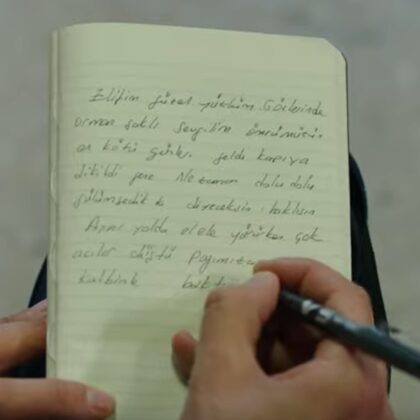 Elifim güzel yüzlüm. Gözlerinde
orman saklı sevgilim ömrümüzün
en kötü günleri geldi kapıya
dikildi yine Ne zaman dolu dolu
gülümsedik ki diyeceksin haklısın
Aynı yolda el ele yürürken çok
acılar düştü Payımıza
kalbink